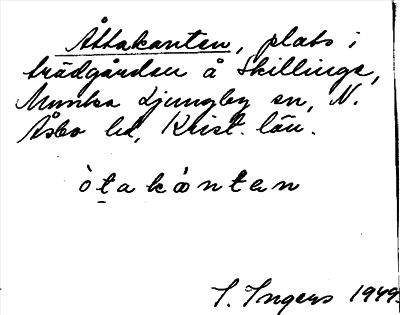 Åttakanten, plats i
trädgården å Skillinge,
Munka Ljungby sn, N.
Åsbo hd, Krist. län.
òtakántan
I. Ingers 1949.